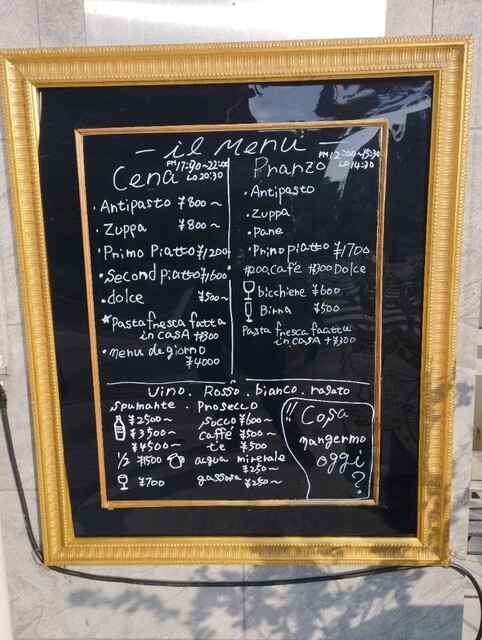 - il Menu -
Cena PM 17:30~22:00
LO 20:30
・Antipasto ¥800~
・Zuppa ¥800~
・Primo Piatto ¥1200
・Second piatto ¥1600
・dolce ¥500~
*Pasta fresca fatta
in casA +¥300
・menu de giorno
¥4000
Pranzo PM 12:00~15:30
LO 14:30
・Antipasto
・Zuppa
・Pane
・Primo piatto ¥1700
¥200 Café ¥300 Dolce
bicchiene ¥600
Birra ¥500
Pasta fresca faatta
in casA +¥300
Vino. Rosso. bianco. rasato
spumante. Prosecco
¥2500~
¥3500~
¥4500~
1/2 ¥1500
¥700
succo ¥600~
caffé ¥500~
te ¥500
acqua minerale
¥250~
gassosa ¥250~
!! Cosa
mangermo
oggi
?